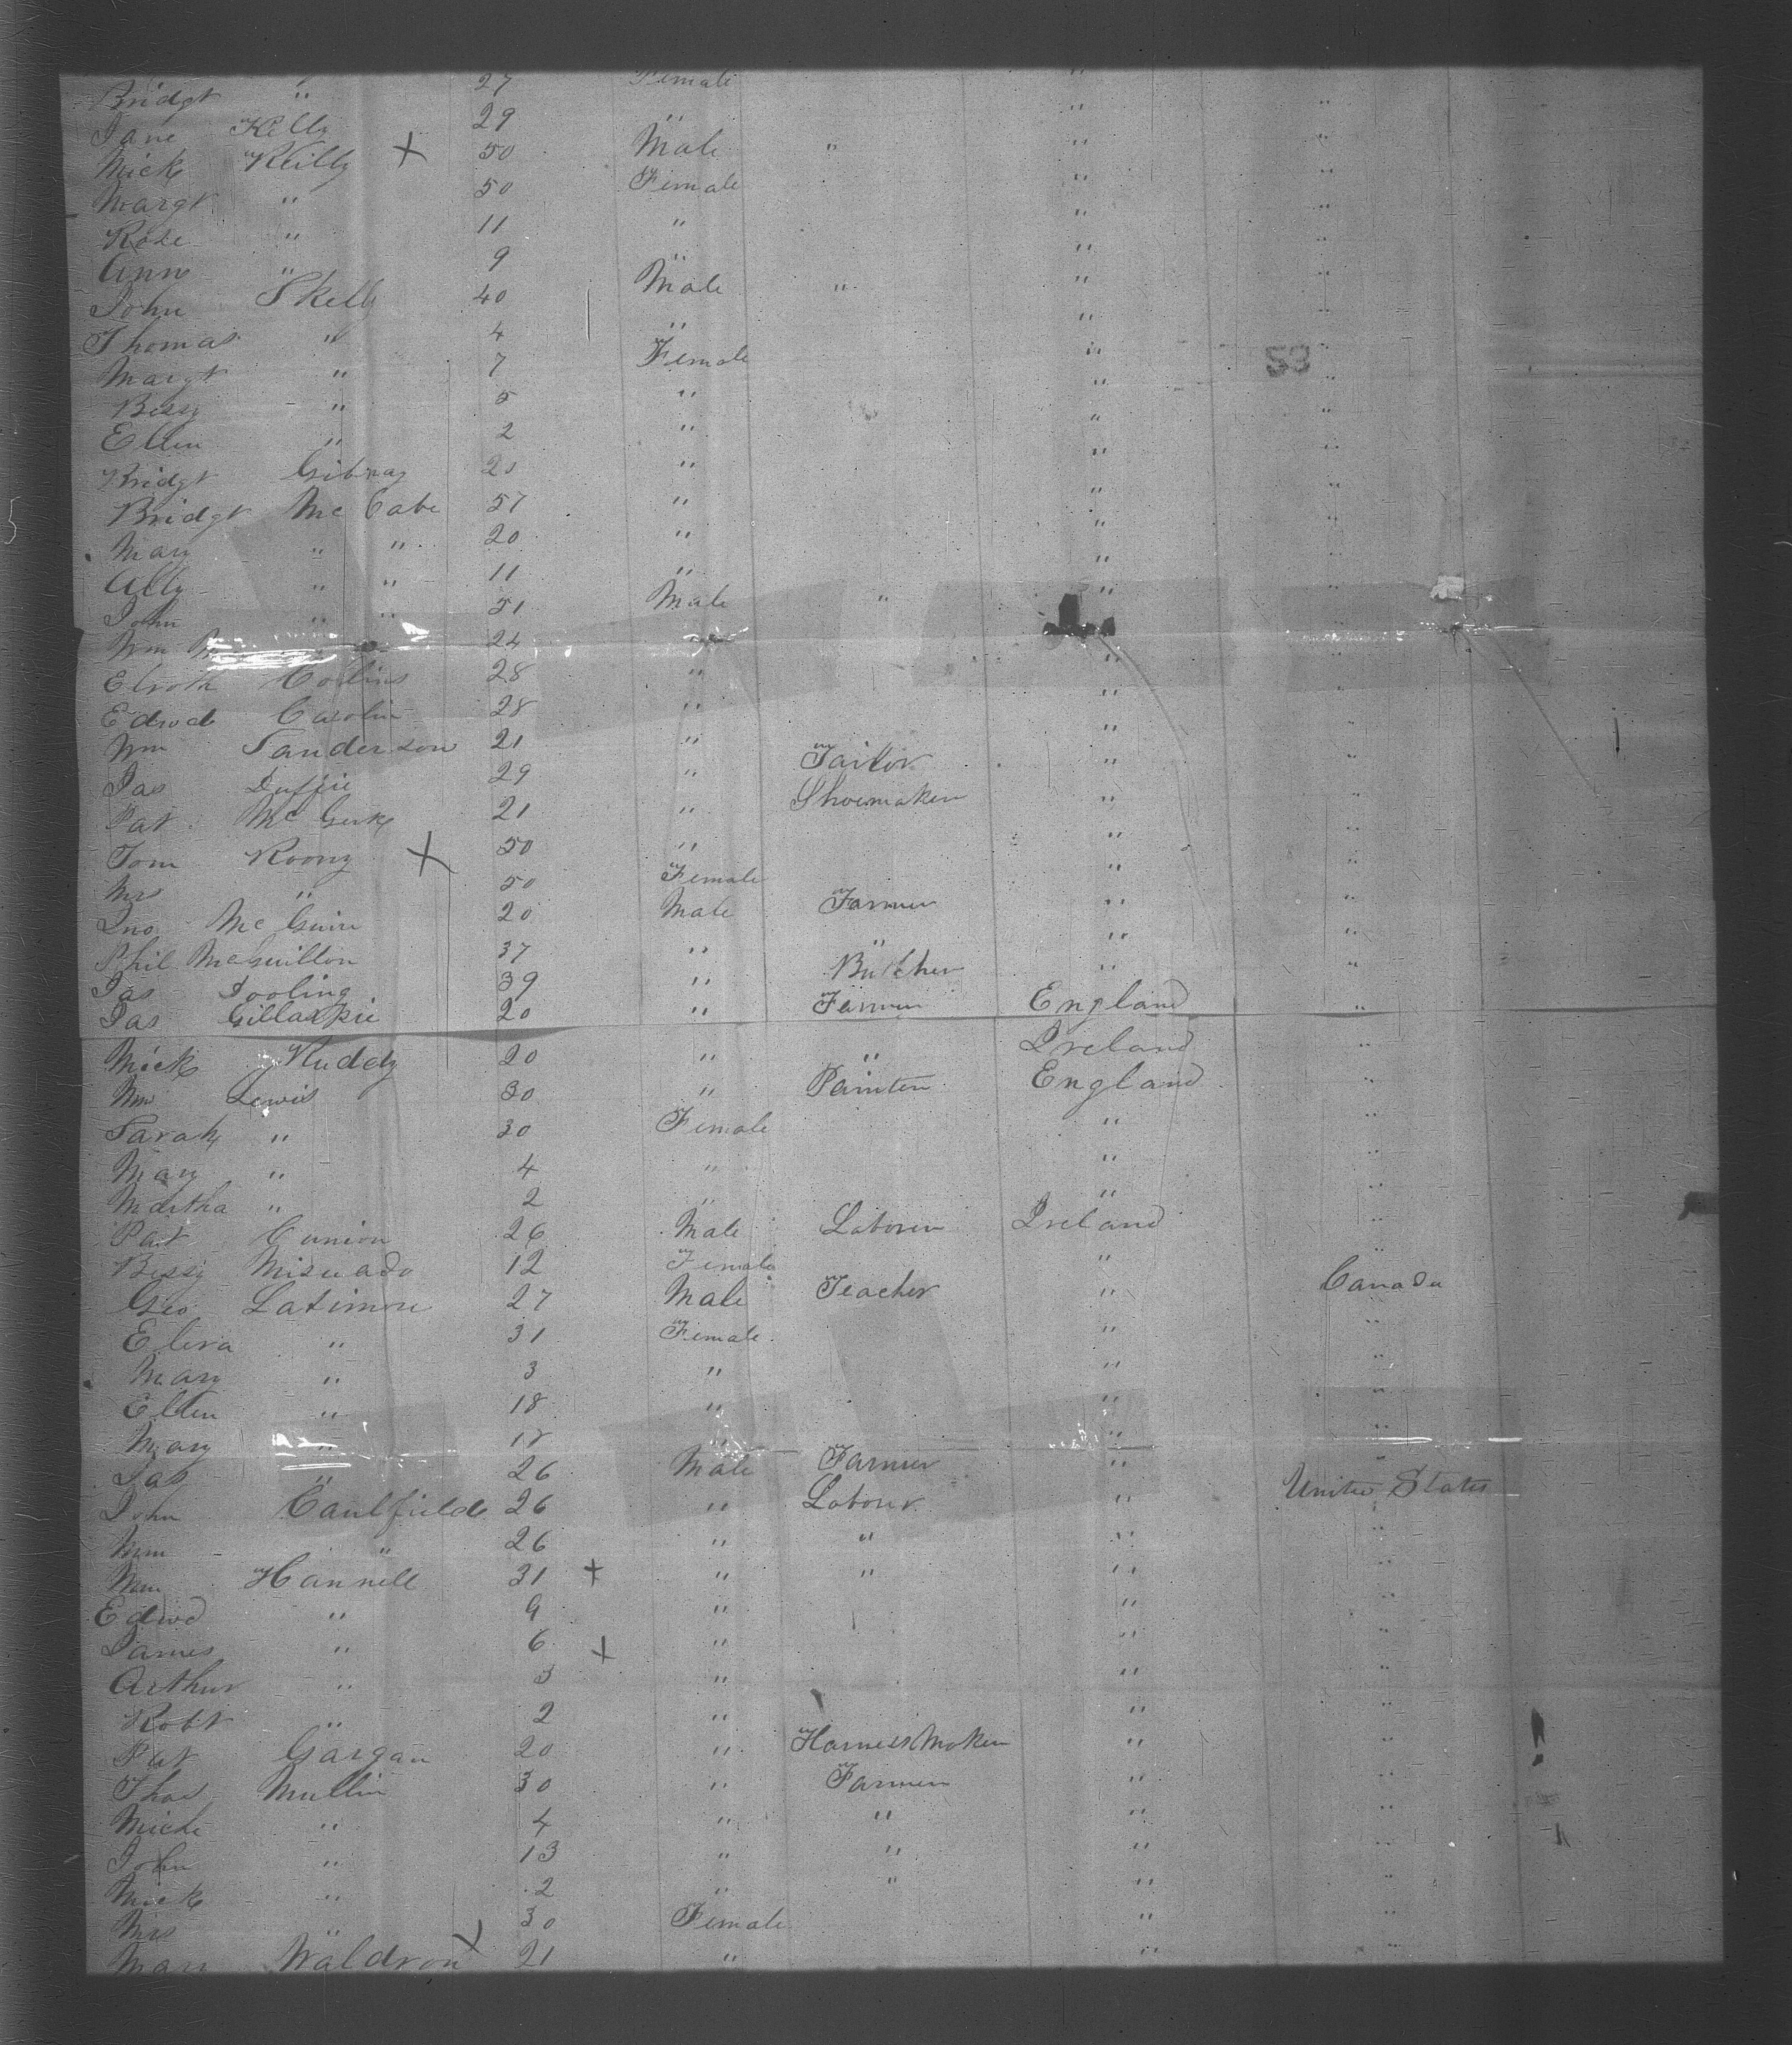 Bridgt " 27 Female "
Jane Kelly 29 " " "
Mick Reilly X 50 Male " " "
Margt " 50 Female " "
Rose " 11 " " "
Ann " 9 " " "
John Skelly 40 Male " " "
Thomas " 4 " " "
Margt " 7 Female " "
Bessy " 5 " " "
Ellen " 2 " " "
Bridgt 20 " " "
Bridgt Mc Cabe 57 " " "
Mary " " 20 " " "
Ally " " 11 " " "
John " " 51 Male " " "
Wm 24 "
Collins 28 " " "
Edwd 28 " "
Wm Sanderson 21 " Tailor " "
Jas Duffie 29 " Shoemaker " "
Pat 21 " " "
Tom Roony X 50 " " "
Mrs " 50 Female " "
Jno Mc Guire 20 Male Farmer " "
Phil 37 " " " "
Jas Dooling 39 " Butcher " "
Jas Gillaspie 20 " Farmer England "
Mick Ruddy 20 " " Ireland "
Wm Lewis 30 " Painter England "
Sarah " 30 Female " "
Mary " 4 " " "
Martha " 2 " " "
Pat 26 Male Laborer Ireland "
Bessy 12 Female " "
Geo Latimore 27 Male Teacher " Canada
" 31 Female " "
Mary " 3 " " "
Ellen " 18 " " "
Mary " " " "
Jas " 26 Male Farmer " "
John Caulfield 26 " Labour " United States
Wm " 26 " " " "
Wm Hannell 31 + " " " "
Edwd " 9 " " "
James " 6 + " " "
Arthur " 3 " " "
Robt " 2 " " "
Pat Gargan 20 " Harness Maker " "
Thos Mullin 30 " Farmer " "
" 4 " " " "
John " 13 " " " "
Mick " 2 " " " "
Mrs " 30 Female " "
Mary Waldron X 21 " " "
53